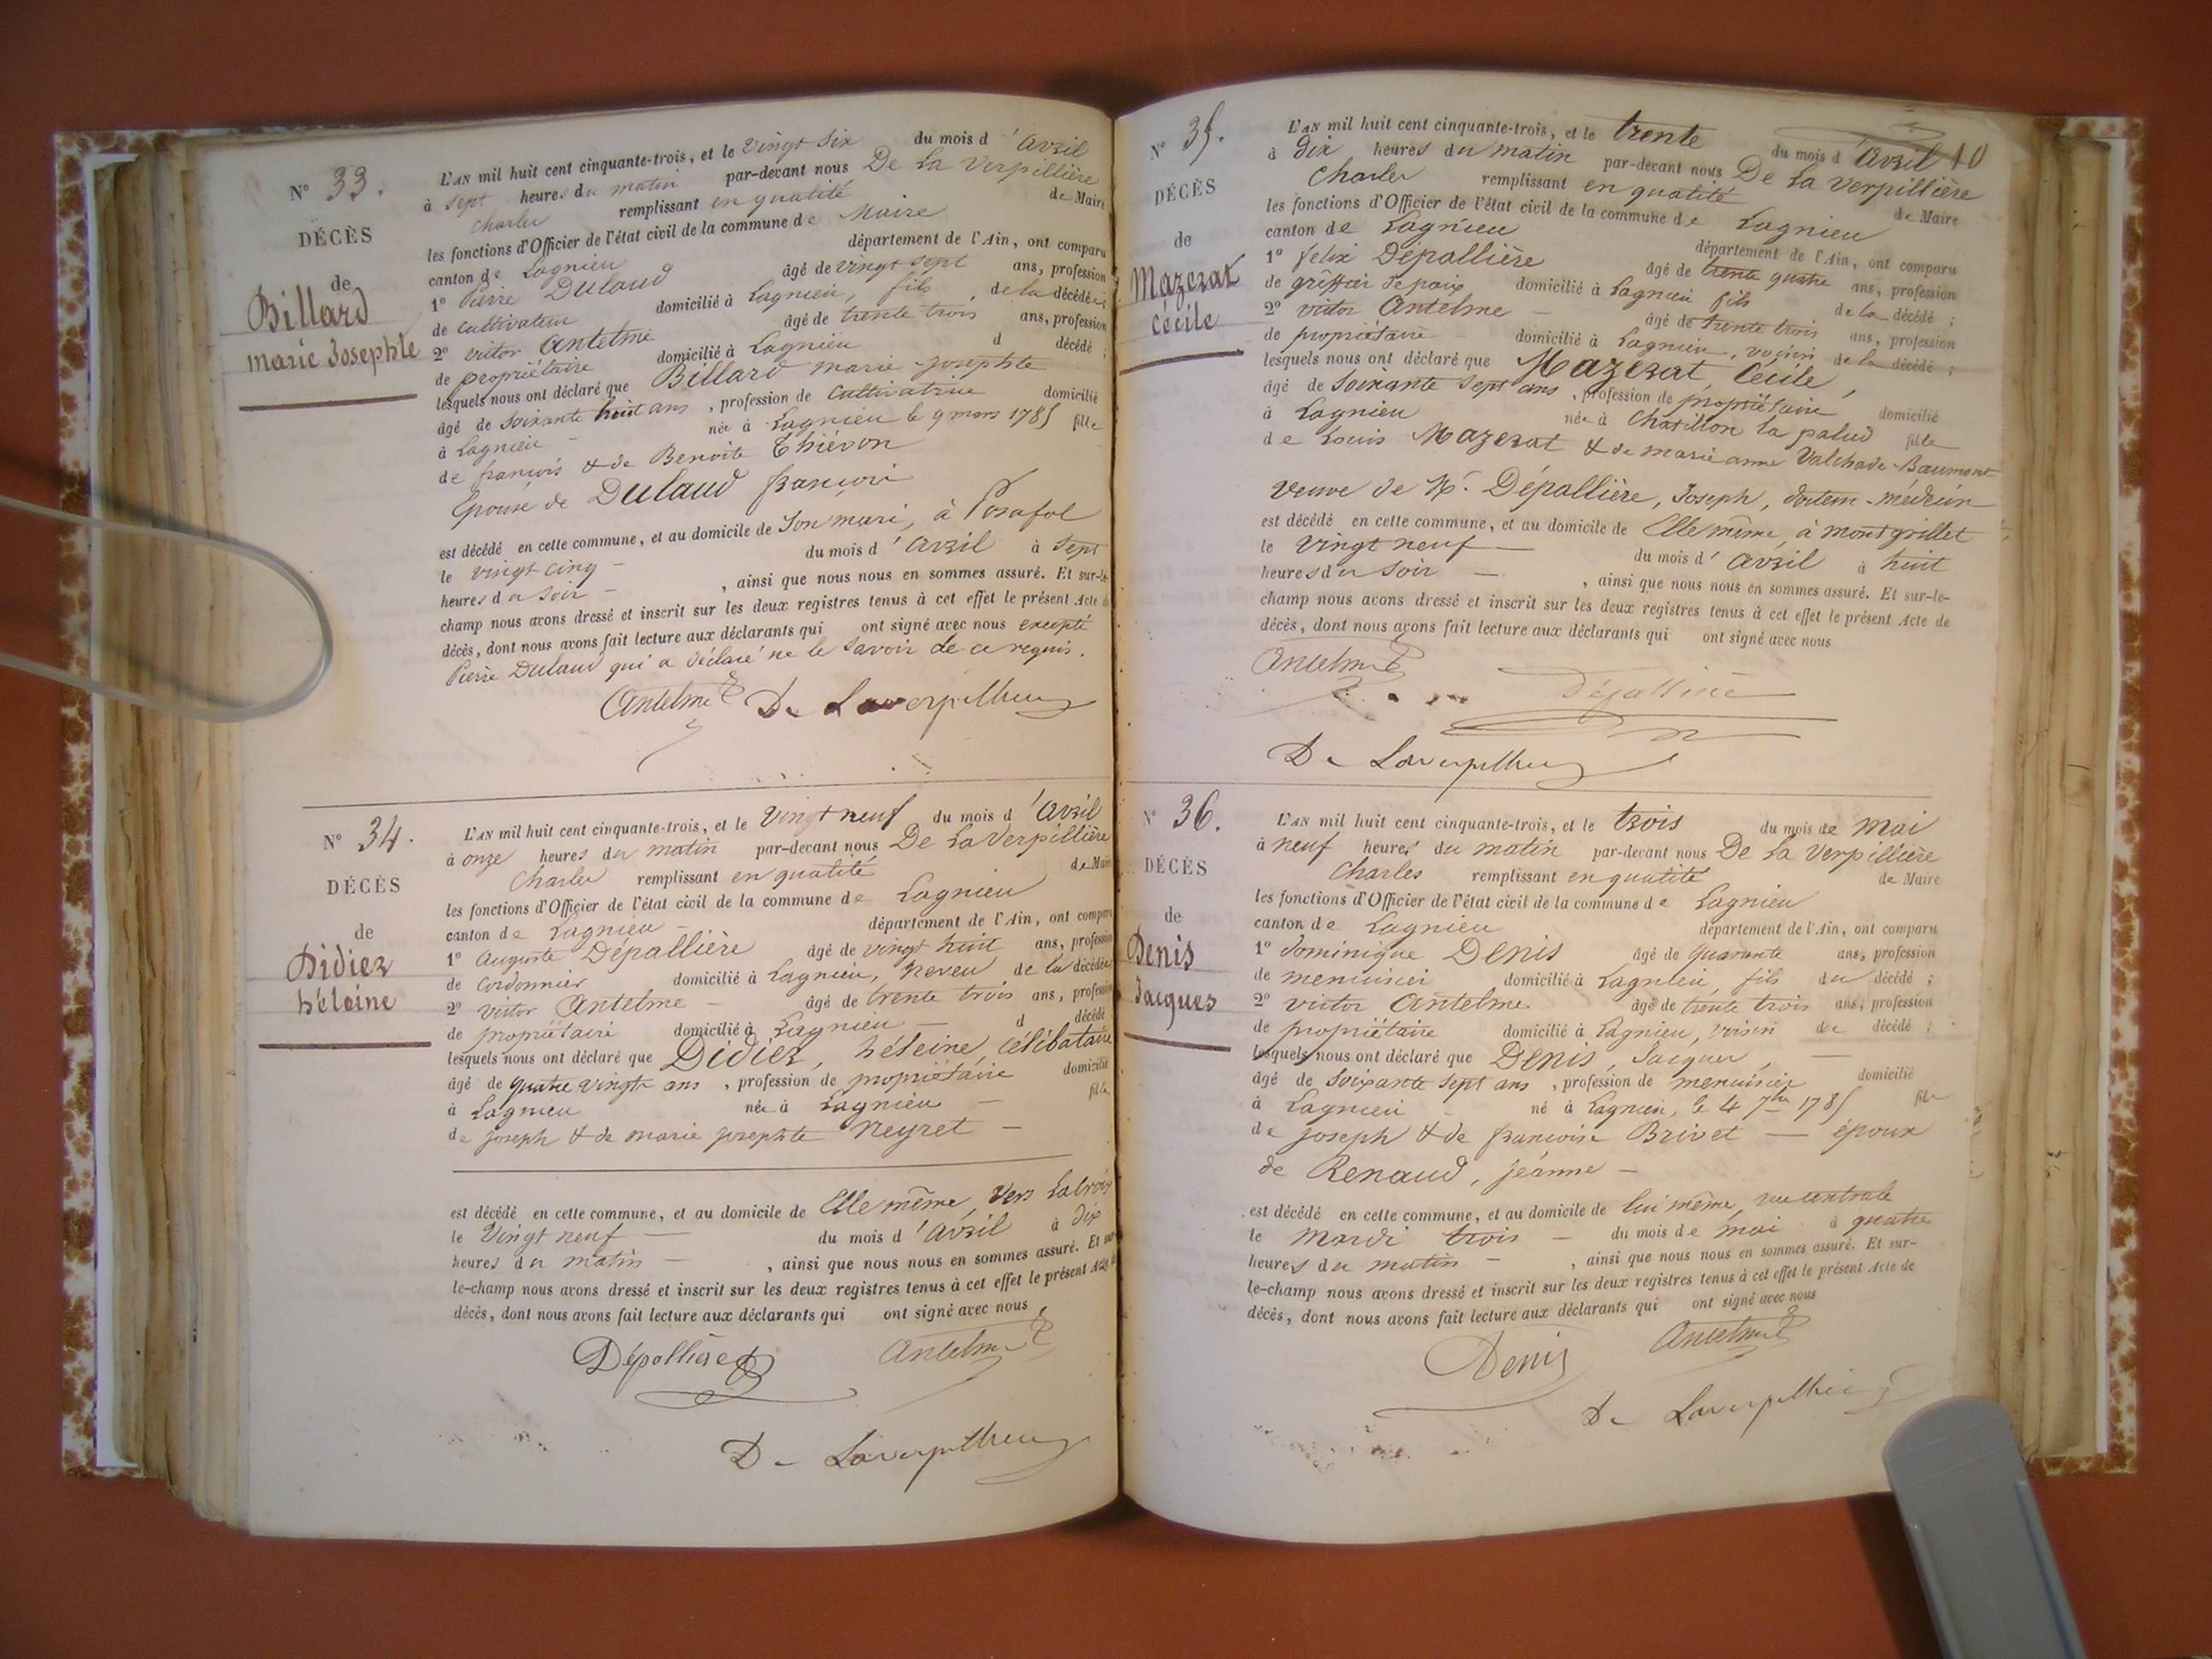 N° 33.
DÉCÈS
de
Billard
marie Josephte
L'AN mil huit cent cinquante-trois, et le vingt six du mois d'avril
à sept heures du matin par-devant nous De La Verpillière
Charles remplissant en qualité de Maire
les fonctions d'Officier de l'état civil de la commune de Maire
canton de Lagnieu département de l'Ain, ont comparu
1° Pierre Dulaud âgé de vingt sept ans, profession
de cultivateur domicilié à Lagnieu, fils de la décédée;
2° victor Antelme âgé de trente trois ans, profession
de propriétaire domicilié à Lagnieu d décédé;
lesquels nous ont déclaré que Billard marie josephte
âgé de soixante huit ans, profession de cultivatrice domicilié
à Lagnieu née à Lagnieu le 9 mars 1785 fille
de françois & de Benoite Thiévon
Epouse de Dulaud françois
est décédé en cette commune, et au domicile de son mari, à Posafol
le vingt cinq du mois d'avril à sept
heures du soir, ainsi que nous nous en sommes assuré. Et sur-le-
champ nous avons dressé et inscrit sur les deux registres tenus à cet effet le présent Acte de
décès, dont nous avons fait lecture aux déclarants qui ont signé avec nous excepté
Pierre Dulaud qui a déclaré ne le savoir de ce requis.
Antelme De Laverpilliere
N° 34.
DÉCÈS
de
Didier
héleine
L'AN mil huit cent cinquante-trois, et le vingt neuf du mois d'avril
à onze heures du matin par-devant nous De La Verpillière
Charles remplissant en qualité de Maire
les fonctions d'Officier de l'état civil de la commune de Lagnieu
canton de Lagnieu département de l'Ain, ont comparu
1° Auguste Dépallière âgé de vingt huit ans, profession
de cordonnier domicilié à Lagnieu, neveu de la décédée
2° victor Antelme âgé de trente trois ans, profession
de propriétaire domicilié à Lagnieu d décédé
lesquels nous ont déclaré que Didier, héleine, célibataire
âgé de quatre vingts ans, profession de propriétaire domicilié
à Lagnieu née à Lagnieu fille
de joseph & de marie josephte Neyret
est décédé en cette commune, et au domicile de Elle même, vers
le vingt neuf du mois d'avril à dix
heures du matin, ainsi que nous nous en sommes assuré. Et sur-
le-champ nous avons dressé et inscrit sur les deux registres tenus à cet effet le présent Acte de
décès, dont nous avons fait lecture aux déclarants qui ont signé avec nous
Dépallière Antelme
De Laverpilliere
N° 35.
DÉCÈS
de
Mazerat
Cécile
10
L'AN mil huit cent cinquante-trois, et le trente du mois d'avril
à dix heures du matin par-devant nous De La Verpillière
Charles remplissant en qualité de Maire
les fonctions d'Officier de l'état civil de la commune de Lagnieu
canton de Lagnieu département de l'Ain, ont comparu
1° felix Dépallière âgé de trente quatre ans, profession
de greffier de paix domicilié à Lagnieu fils de la décédé;
2° victor Antelme âgé de trente trois ans, profession
de propriétaire domicilié à Lagnieu, voisin de la décédé;
lesquels nous ont déclaré que Mazerat, Cécile,
âgé de soixante sept ans, profession de propriétaire domicilié
à Lagnieu née à Chatillon la palud fille
de Louis Mazerat & de marie anne Valchade-Baumont
veuve de Mr. Dépallière, Joseph, docteur-médecin
est décédé en cette commune, et au domicile de Elle même, à montgrillet
le vingt neuf du mois d'avril à huit
heures du soir, ainsi que nous nous en sommes assuré. Et sur-le-
champ nous avons dressé et inscrit sur les deux registres tenus à cet effet le présent Acte de
décès, dont nous avons fait lecture aux déclarants qui ont signé avec nous
Antelme
Dépallière
De Laverpilliere
N° 36.
DÉCÈS
de
Denis
Jacques
L'AN mil huit cent cinquante-trois, et le trois du mois de mai
à neuf heures du matin par-devant nous De La Verpillière
Charles remplissant en qualité de Maire
les fonctions d'Officier de l'état civil de la commune de Lagnieu
canton de Lagnieu département de l'Ain, ont comparu
1° dominique Denis âgé de quarante ans, profession
de menuisier domicilié à Lagnieu, fils du décédé;
2° victor Antelme âgé de trente trois ans, profession
de propriétaire domicilié à Lagnieu, voisin du décédé;
lesquels nous ont déclaré que Denis, Jacques,
âgé de soixante sept ans, profession de menuisier domicilié
à Lagnieu né à Lagnieu, le 4 7bre 1785 fils
de joseph & de françoise Brivet — époux
de Renaud, jeanne
est décédé en cette commune, et au domicile de lui même, rue centrale
le mardi trois du mois de mai à quatre
heures du matin, ainsi que nous nous en sommes assuré. Et sur-
le-champ nous avons dressé et inscrit sur les deux registres tenus à cet effet le présent Acte de
décès, dont nous avons fait lecture aux déclarants qui ont signé avec nous
Denis Antelme
De Laverpilliere